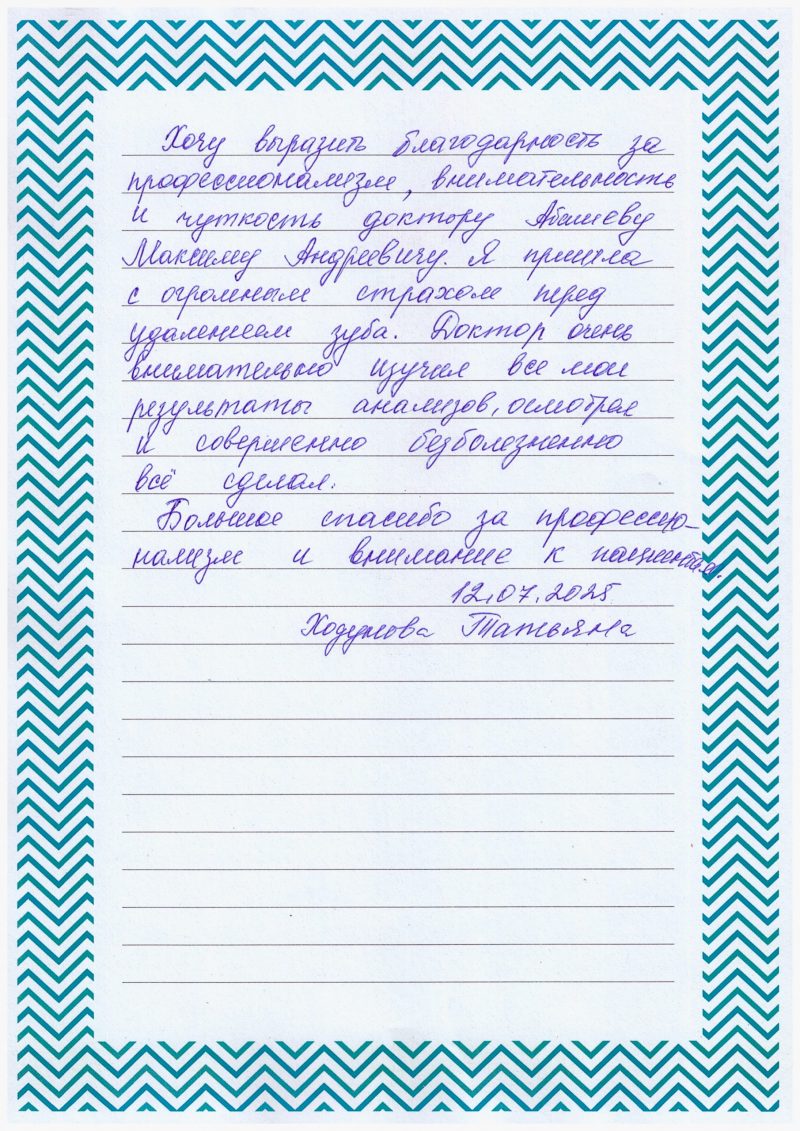 Хочу выразить благодарность за
профессионализм, внимательность
и чуткость доктору
Максиму Андреевичу. Я пришла
с огромным страхом перед
удалением зуба. Доктор очень
внимательно изучил все мои
результаты анализов, осмотрел
и совершенно безболезненно
всё сделал.
Большое спасибо за профессио-
нализм и внимание к пациентам.
12.07.2025
Ходунова Татьяна